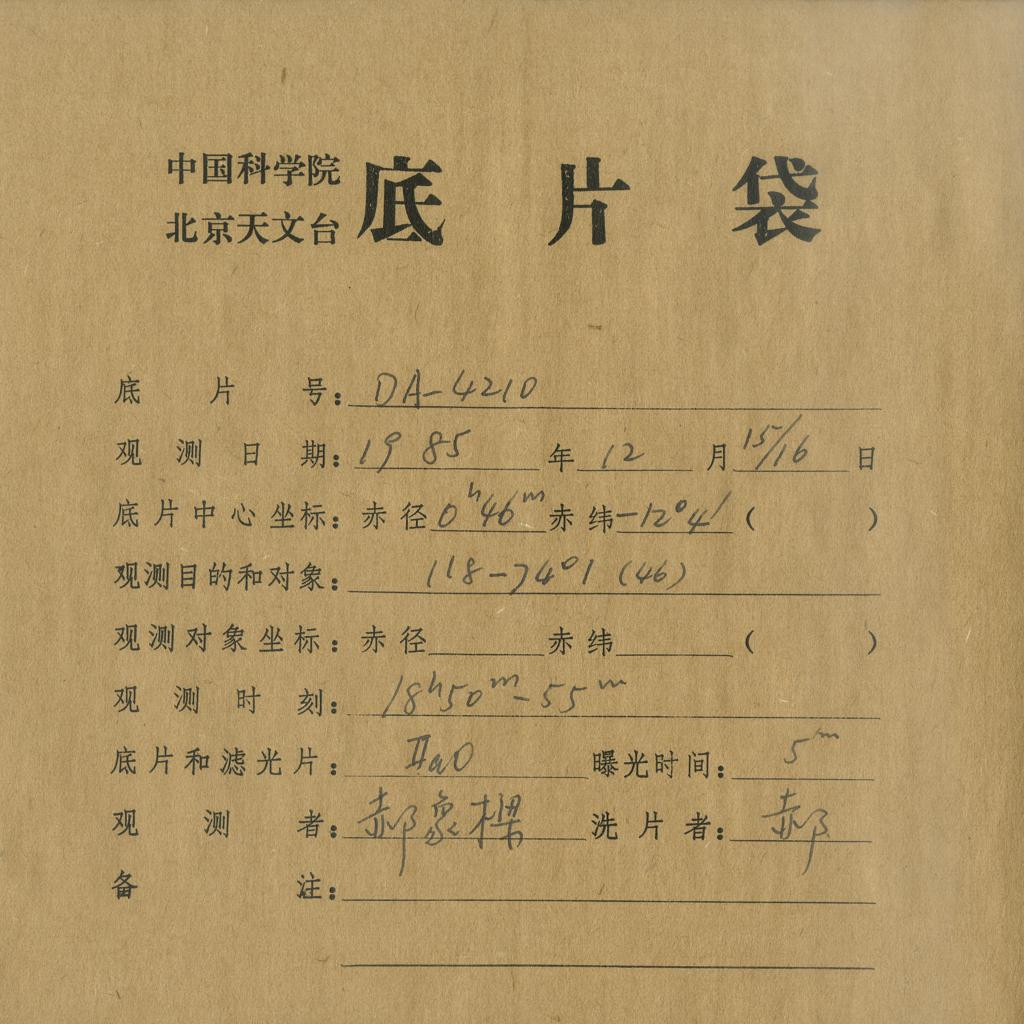 中国科学院
北京天文台 底片袋
底片号：DA-4210
观测日期：1985年12月15/16日
底片中心坐标：赤径0h46m赤纬-12°4′（ ）
观测目的和对象：118-74°1 (46)
观测对象坐标：赤径 赤纬 （ ）
观测时刻：18h50m-55m
底片和滤光片：IIaO 曝光时间：5m
观测者：郝象樑 洗片者：郝
备注：